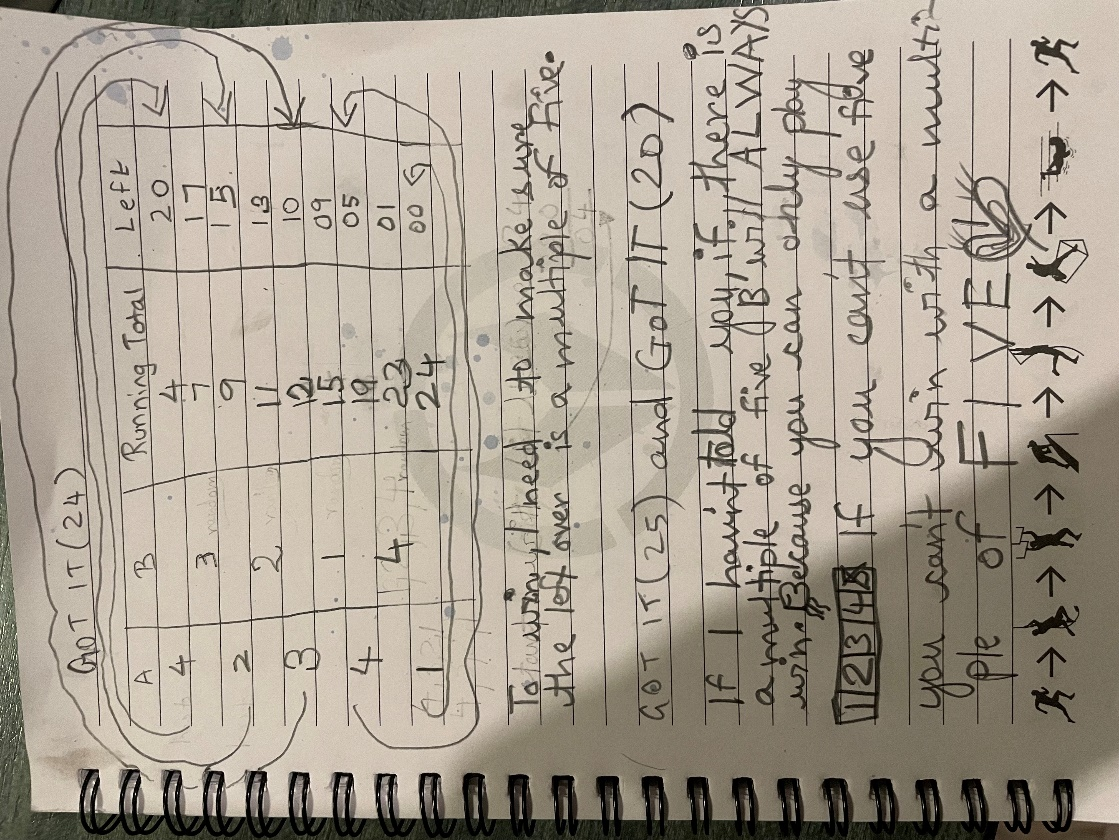 GOT IT (24)
A B Running Total Left
4 4 20
3 7 17
2 9 15
2 11 13
3 12 10
1 15 09
4 19 05
4 23 01
1 24 00
To win, I need to make sure
the left over is a multiple of five.
GOT IT (25) and GOT IT (20)
If I havin't told you, if there is
a multiple of five 'B' will ALWAYS
win, Because you can only play
1 2 3 4 If you can't use five
you can't win with a multi-
ple of FIVE